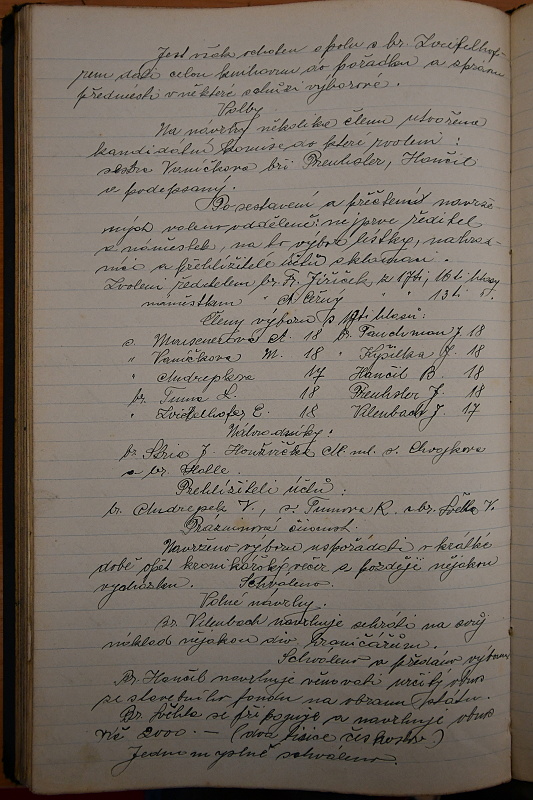 Jest však ochoten spolu s br. Zveifelhof-
rem dáti celou knihovnu do pořádku a zprávu
přednésti v některé schůzi výborové.
Volby
Na návrhy několika členů utvořena
kandidátní komise do které zvoleni:
sestra Vaníčkova bři Preuhsler, Hančil
a podepsaný.
Po sestavení a přečtení navrže-
ných voleno odděleně: nejprve ředitel
a náměstek, na to výbor lístky, náhrad-
níci a přehlížitelé účtů aklamací.
Zvoleni ředitelem br. Fr. Jiříček z 17ti, 16ti hlasy
náměstkem " A. Černý " " 13ti "
Členy výboru z 18ti hlasů:
s. A. 18 br. Tauchman J. 18
" Vaníčkova M. 18 " Kypělka J. 18
" Chudrepkova 17 Hančil B. 18
br. Tuma L. 18 Preuhsler J. 18
" Zveifelhofer E. 18 Vilenbach J. 17
Náhradníky:
br. J. Honzvíček M. ml. s. Chvojkova
a br. Holle.
Přehlížiteli účtů:
br. Chudrepek V., s. Tumova R. a br. Světla V.
činnost.
Navrženo výborem uspořádati v krátké
době opět kronikářský večer a později nějakou
vycházku. Schváleno.
Volné návrhy.
Br. Vilenbach navrhuje sehráti na svůj
náklad nějakou div. hraničářům.
Schváleno a předáno výboru
Br. Hančil navrhuje věnovati určitý obnos
ze stavebního fondu na obranu státu.
Br. Světla se připojuje a navrhuje obnos
Kč 2000.— (dva tisíce českoslov.)
Jednomyslně schváleno.